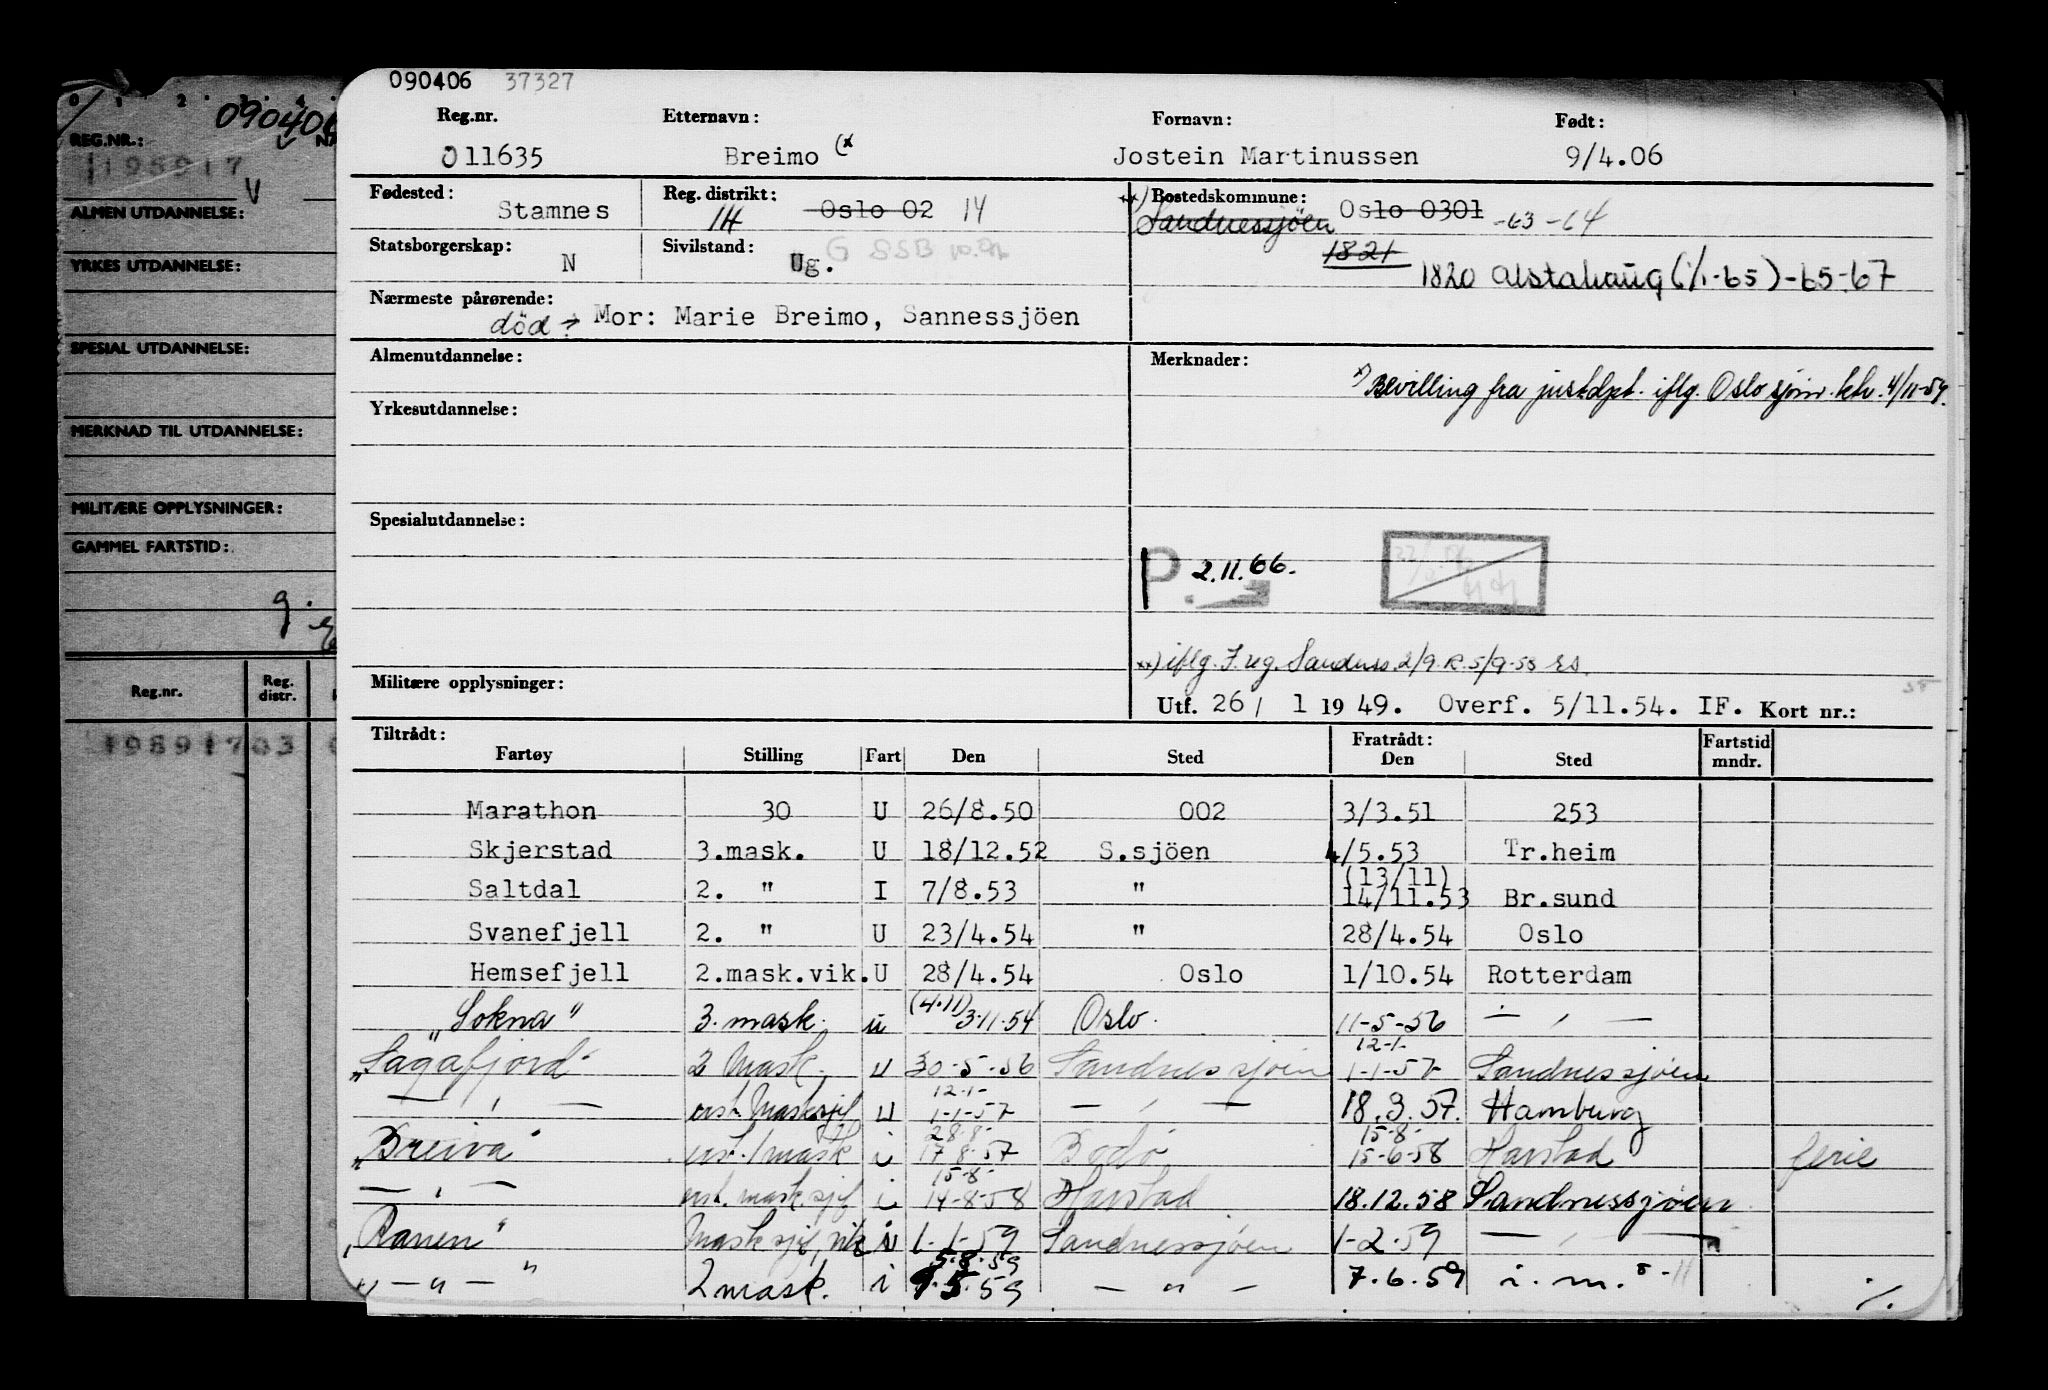 090406 37327
Reg.nr. Etternavn: Fornavn: Født:
011635 Breimo (x Jostein Martinussen 9/4.06
Fødested: Stamnes Reg. distrikt: 14 Oslo 02 14 xx) Bostedskommune: Oslo 0301 -63-64
Sandnessjöen
Statsborgerskap: N Sivilstand: Ug. G SSB 1821
1820 Alstahaug (1/1-65)-65-67
Nærmeste pårørende: Mor: Marie Breimo, Sannessjöen
död
Almenutdannelse: Merknader:
x) Bevilling fra justdpt. iflg. Oslo sjøm. ktr. 4/11-54.
Yrkesutdannelse:
Spesialutdannelse:
P 2.11.66.
xx) iflg. F. reg. Sandnes. 2/9. R. 5/9-58
Militære opplysninger: Utf. 26/ 1 19 49. Overf. 5/11.54. IF. Kort nr.:
Tiltrådt: Fratrådt: Fartstid
Fartøy Stilling Fart Den Sted Den Sted mndr.
Marathon 30 U 26/8.50 002 3/3.51 253
Skjerstad 3.mask. U 18/12.52 S.sjöen 4/5.53 Tr.heim
(13/11)
Saltdal 2. " I 7/8.53 " 14/11.53 Br.sund
Svanefjell 2. " U 23/4.54 " 28/4.54 Oslo
Hemsefjell 2.mask.vik. U 28/4.54 Oslo 1/10.54 Rotterdam
(4.11)
"Sokna" 3. mask. u 3.11.54 Oslo. 11-5-56 — " —
12-1-
"Sagafjord" 2 Mask. u 30-5-56 Sandnessjøen 1-1-57 Sandnessjøen
12-1-
— " — mask.sjef u 1-1-57 — " — 18.3.57. Hamburg
28-8- 15-8-
"Breiva" 1 mask i 17-8-57 Bodø 15-6-58 Harstad ferie
15-8-
— " — mask.sjef i 14-8-58 Harstad 18.12.58 Sandnessjøen
"Ranen" Mask sjef, vik i 1-1-59 Sandnessjøen 1-2-59 — " —
5.8.59
" — " — " 2 mask. i 9.5.59 — " — 7.6.59 i. m. 8-11
./.
0 1 2 3 4
090406
REG.NR.:
198917
V
ALMEN UTDANNELSE:
YRKES UTDANNELSE:
SPESIAL UTDANNELSE:
MERKNAD TIL UTDANNELSE:
MILITÆRE OPPLYSNINGER:
GAMMEL FARTSTID:
g.
Reg.nr. Reg. distr.
198917 03